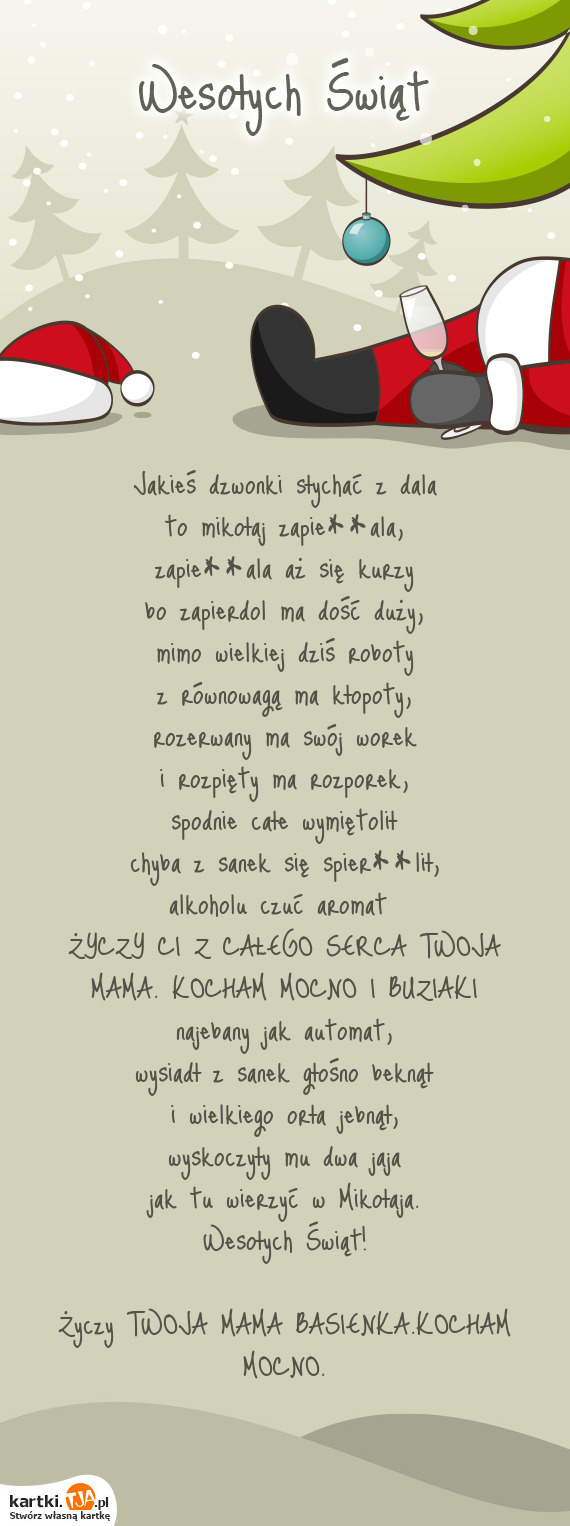 Wesołych Świąt
Jakieś dzwonki słychać z dala
to mikołaj zapie**ala,
zapie**ala aż się kurzy
bo zapierdol ma dość duży,
mimo wielkiej dziś roboty
z równowagą ma kłopoty,
rozerwany ma swój worek
i rozpięty ma rozporek,
spodnie całe wymiętolił
chyba z sanek się spier**lił,
alkoholu czuć aromat
ŻYCZY CI Z CAŁEGO SERCA TWOJA
MAMA. KOCHAM MOCNO I BUZIAKI
najebany jak automat,
wysiadł z sanek głośno beknął
i wielkiego orła jebnął,
wyskoczyły mu dwa jaja
jak tu wierzyć w Mikołaja.
Wesołych Świąt!
Życzy TWOJA MAMA BASIENKA.KOCHAM
MOCNO.
kartki.TJA.pl
Stwórz własną kartkę